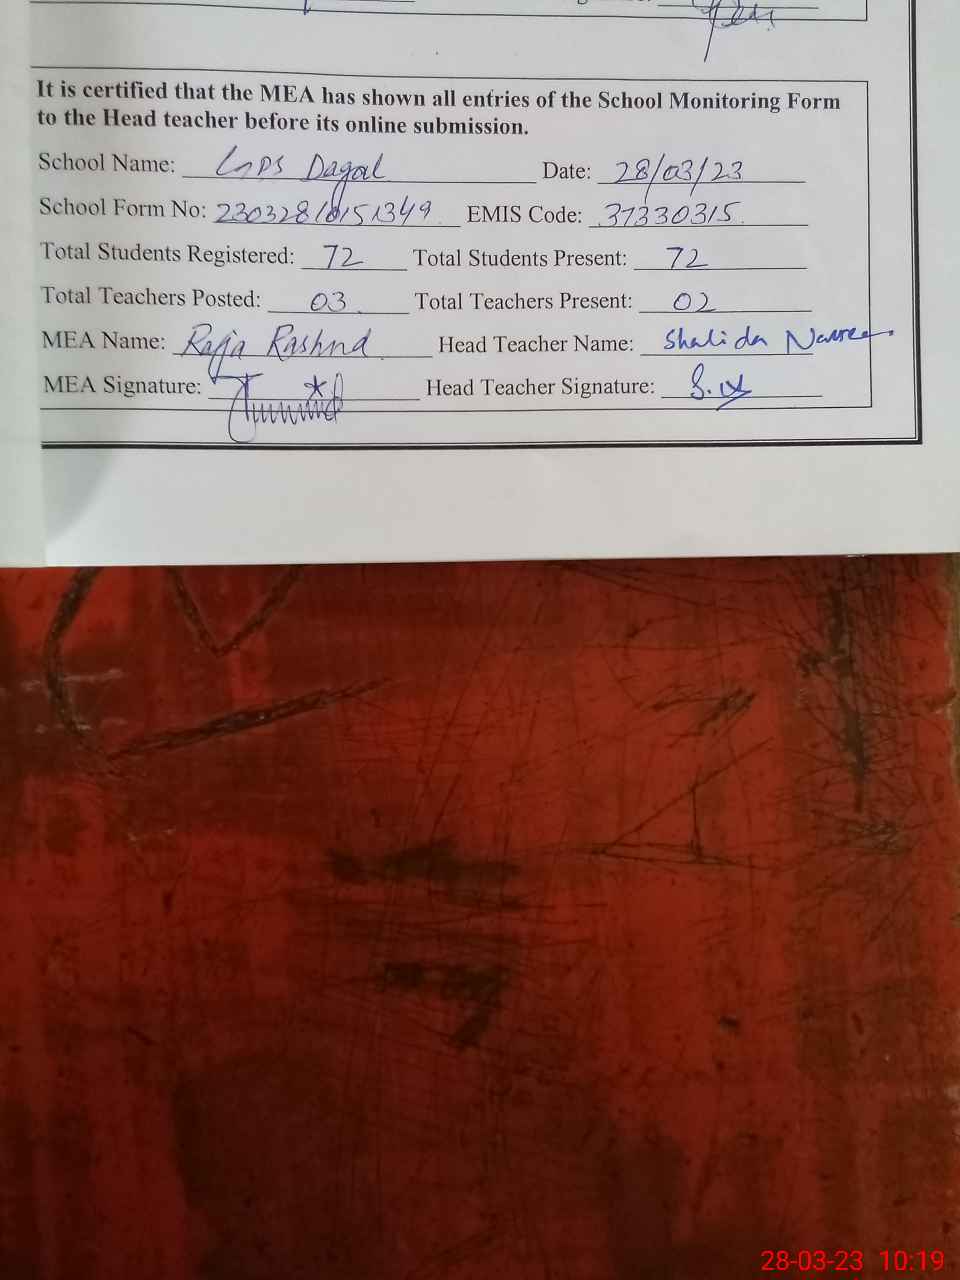 It is certified that the MEA has shown all entries of the School Monitoring Form
to the Head teacher before its online submission.
School Name: GPS Dagal Date: 28/03/23
School Form No: EMIS Code: 37330315
Total Students Registered: 72 Total Students Present: 72
Total Teachers Posted: 03 Total Teachers Present: 02
MEA Name: Raja Rashid Head Teacher Name:
MEA Signature: Head Teacher Signature:
28-03-23 10:19